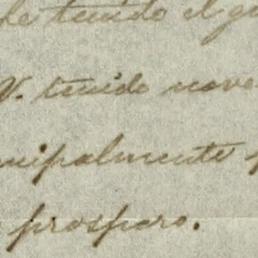 he tenido el gu
V. tenido nove
ncipalmente p
prospero.